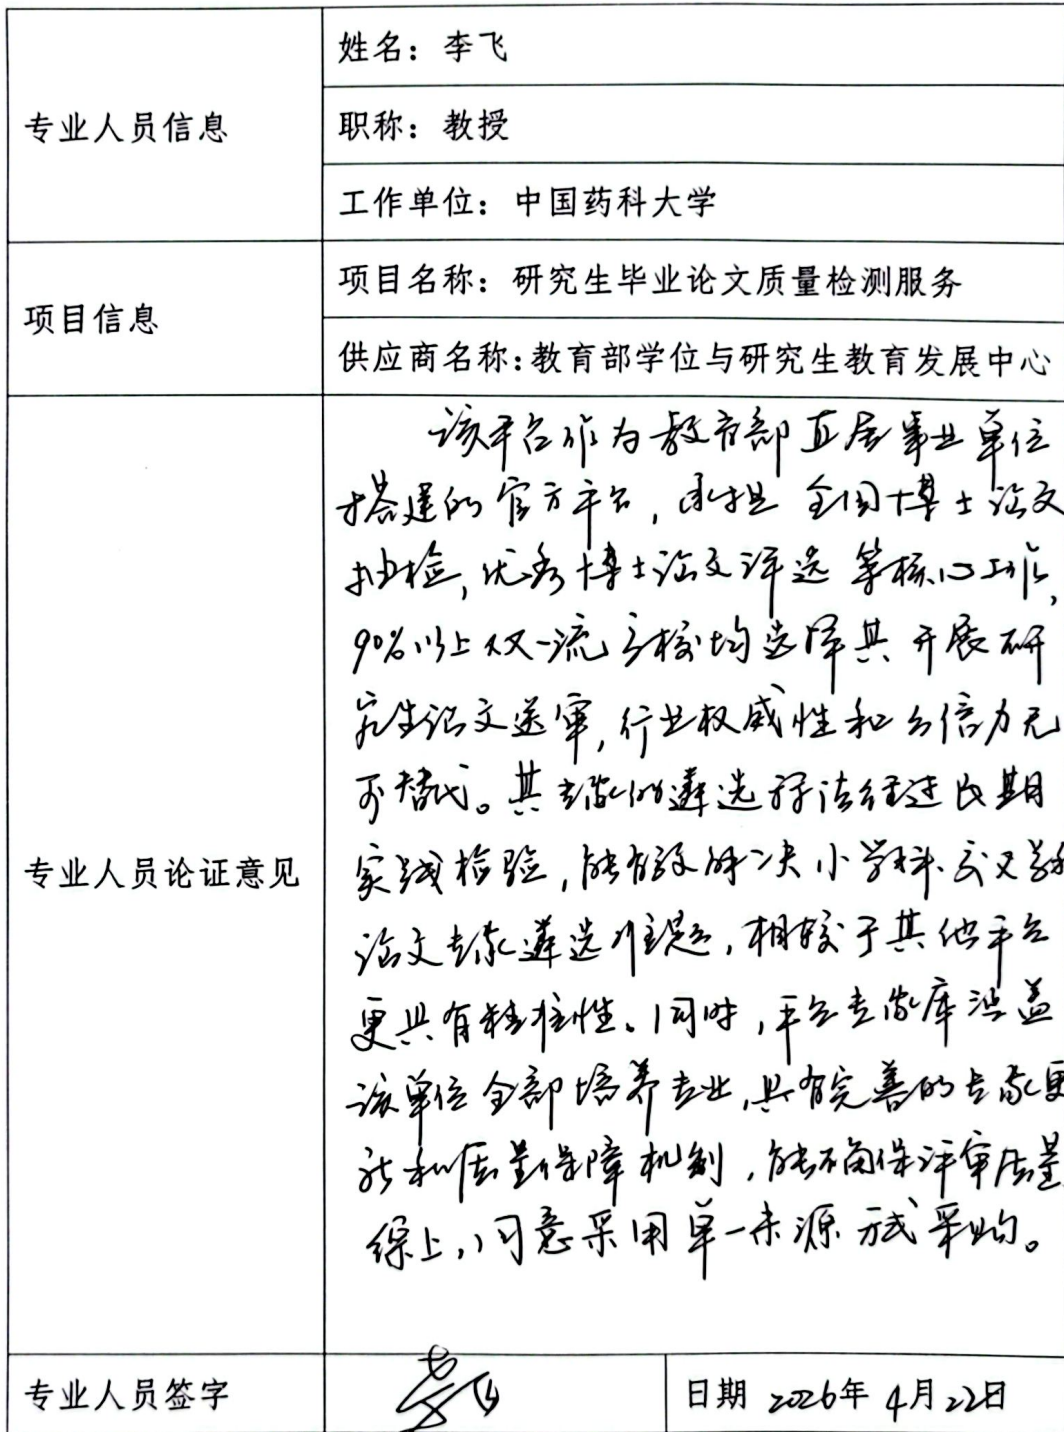 专业人员信息
姓名：李飞
职称：教授
工作单位：中国药科大学
项目信息
项目名称：研究生毕业论文质量检测服务
供应商名称：教育部学位与研究生教育发展中心
专业人员论证意见
该平台作为教育部直属事业单位
搭建的官方平台，承担全国博士论文
抽检，优秀博士论文评选等核心工作，
90%以上双一流高校均选择其开展研
究生论文送审，行业权威性和公信力无
可替代。其专家的遴选算法经过长期
实践检验，能有效解决小学科、交叉学科
论文专家遴选难题，相较于其他平台
更具有精准性。同时，平台专家库涵盖
该单位全部培养专业，具有完善的专家更
新和质量保障机制，能确保评审质量
综上，同意采用单一来源方式采购。
专业人员签字
李飞
日期 2026年 4月22日